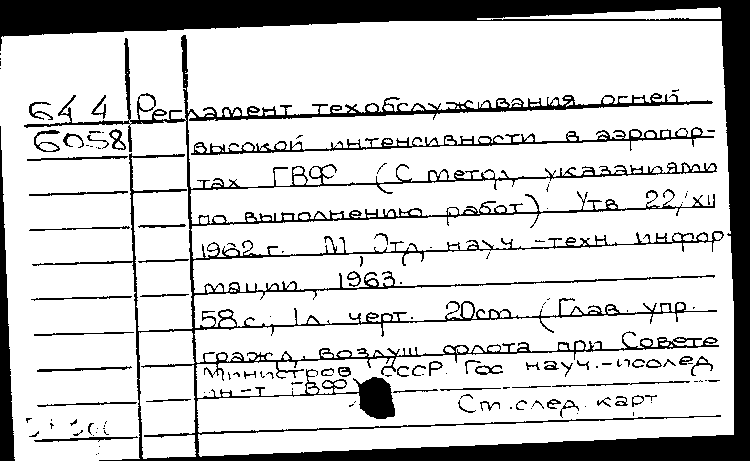 644 Регламент техобслуживания огней
6058 высокой интенсивности в аэропор-
тах ГВФ (С метод. указаниями
по выполнению работ). Утв 22/XII
1962 г. М., Отд. науч.-техн. инфор-
мации, 1963.
58 с., 1 л. черт. 20 см. (Глав. упр.
гражд. воздуш. флота при Совете
Министров СССР. Гос науч.-исслед
ин-т ГВФ)
См. след. карт